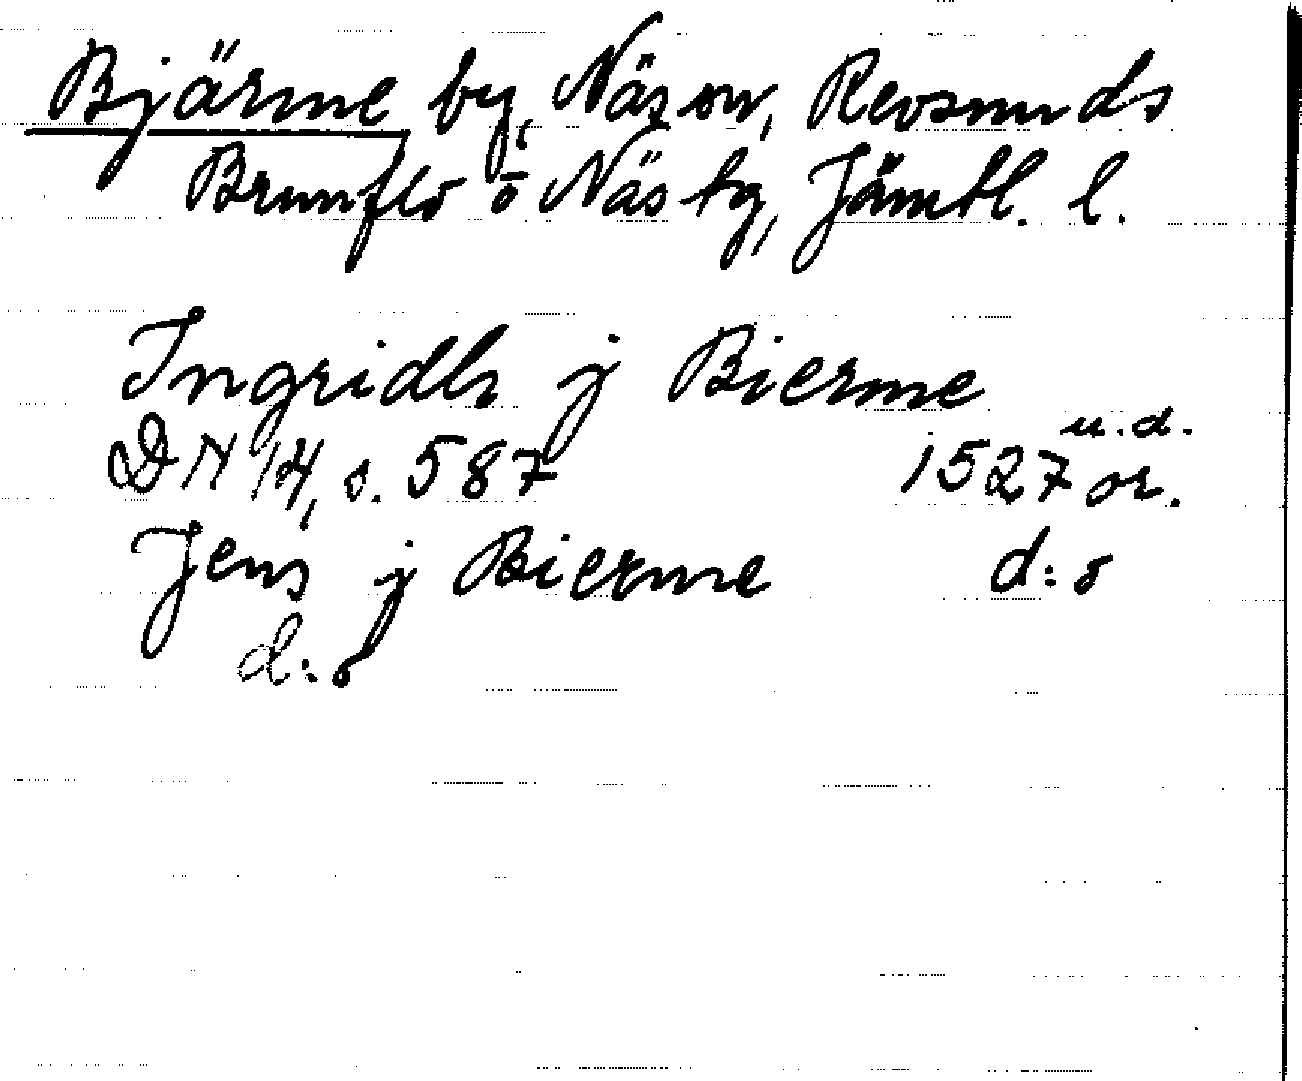 Bjärme by, Näs sn, Revsunds
Brunflo o Näs tg, Jämtl. l.
Ingridh j Bierme
DN 14, s. 587 1527 u.d. or.
Jens j Bierme d:o
d:o